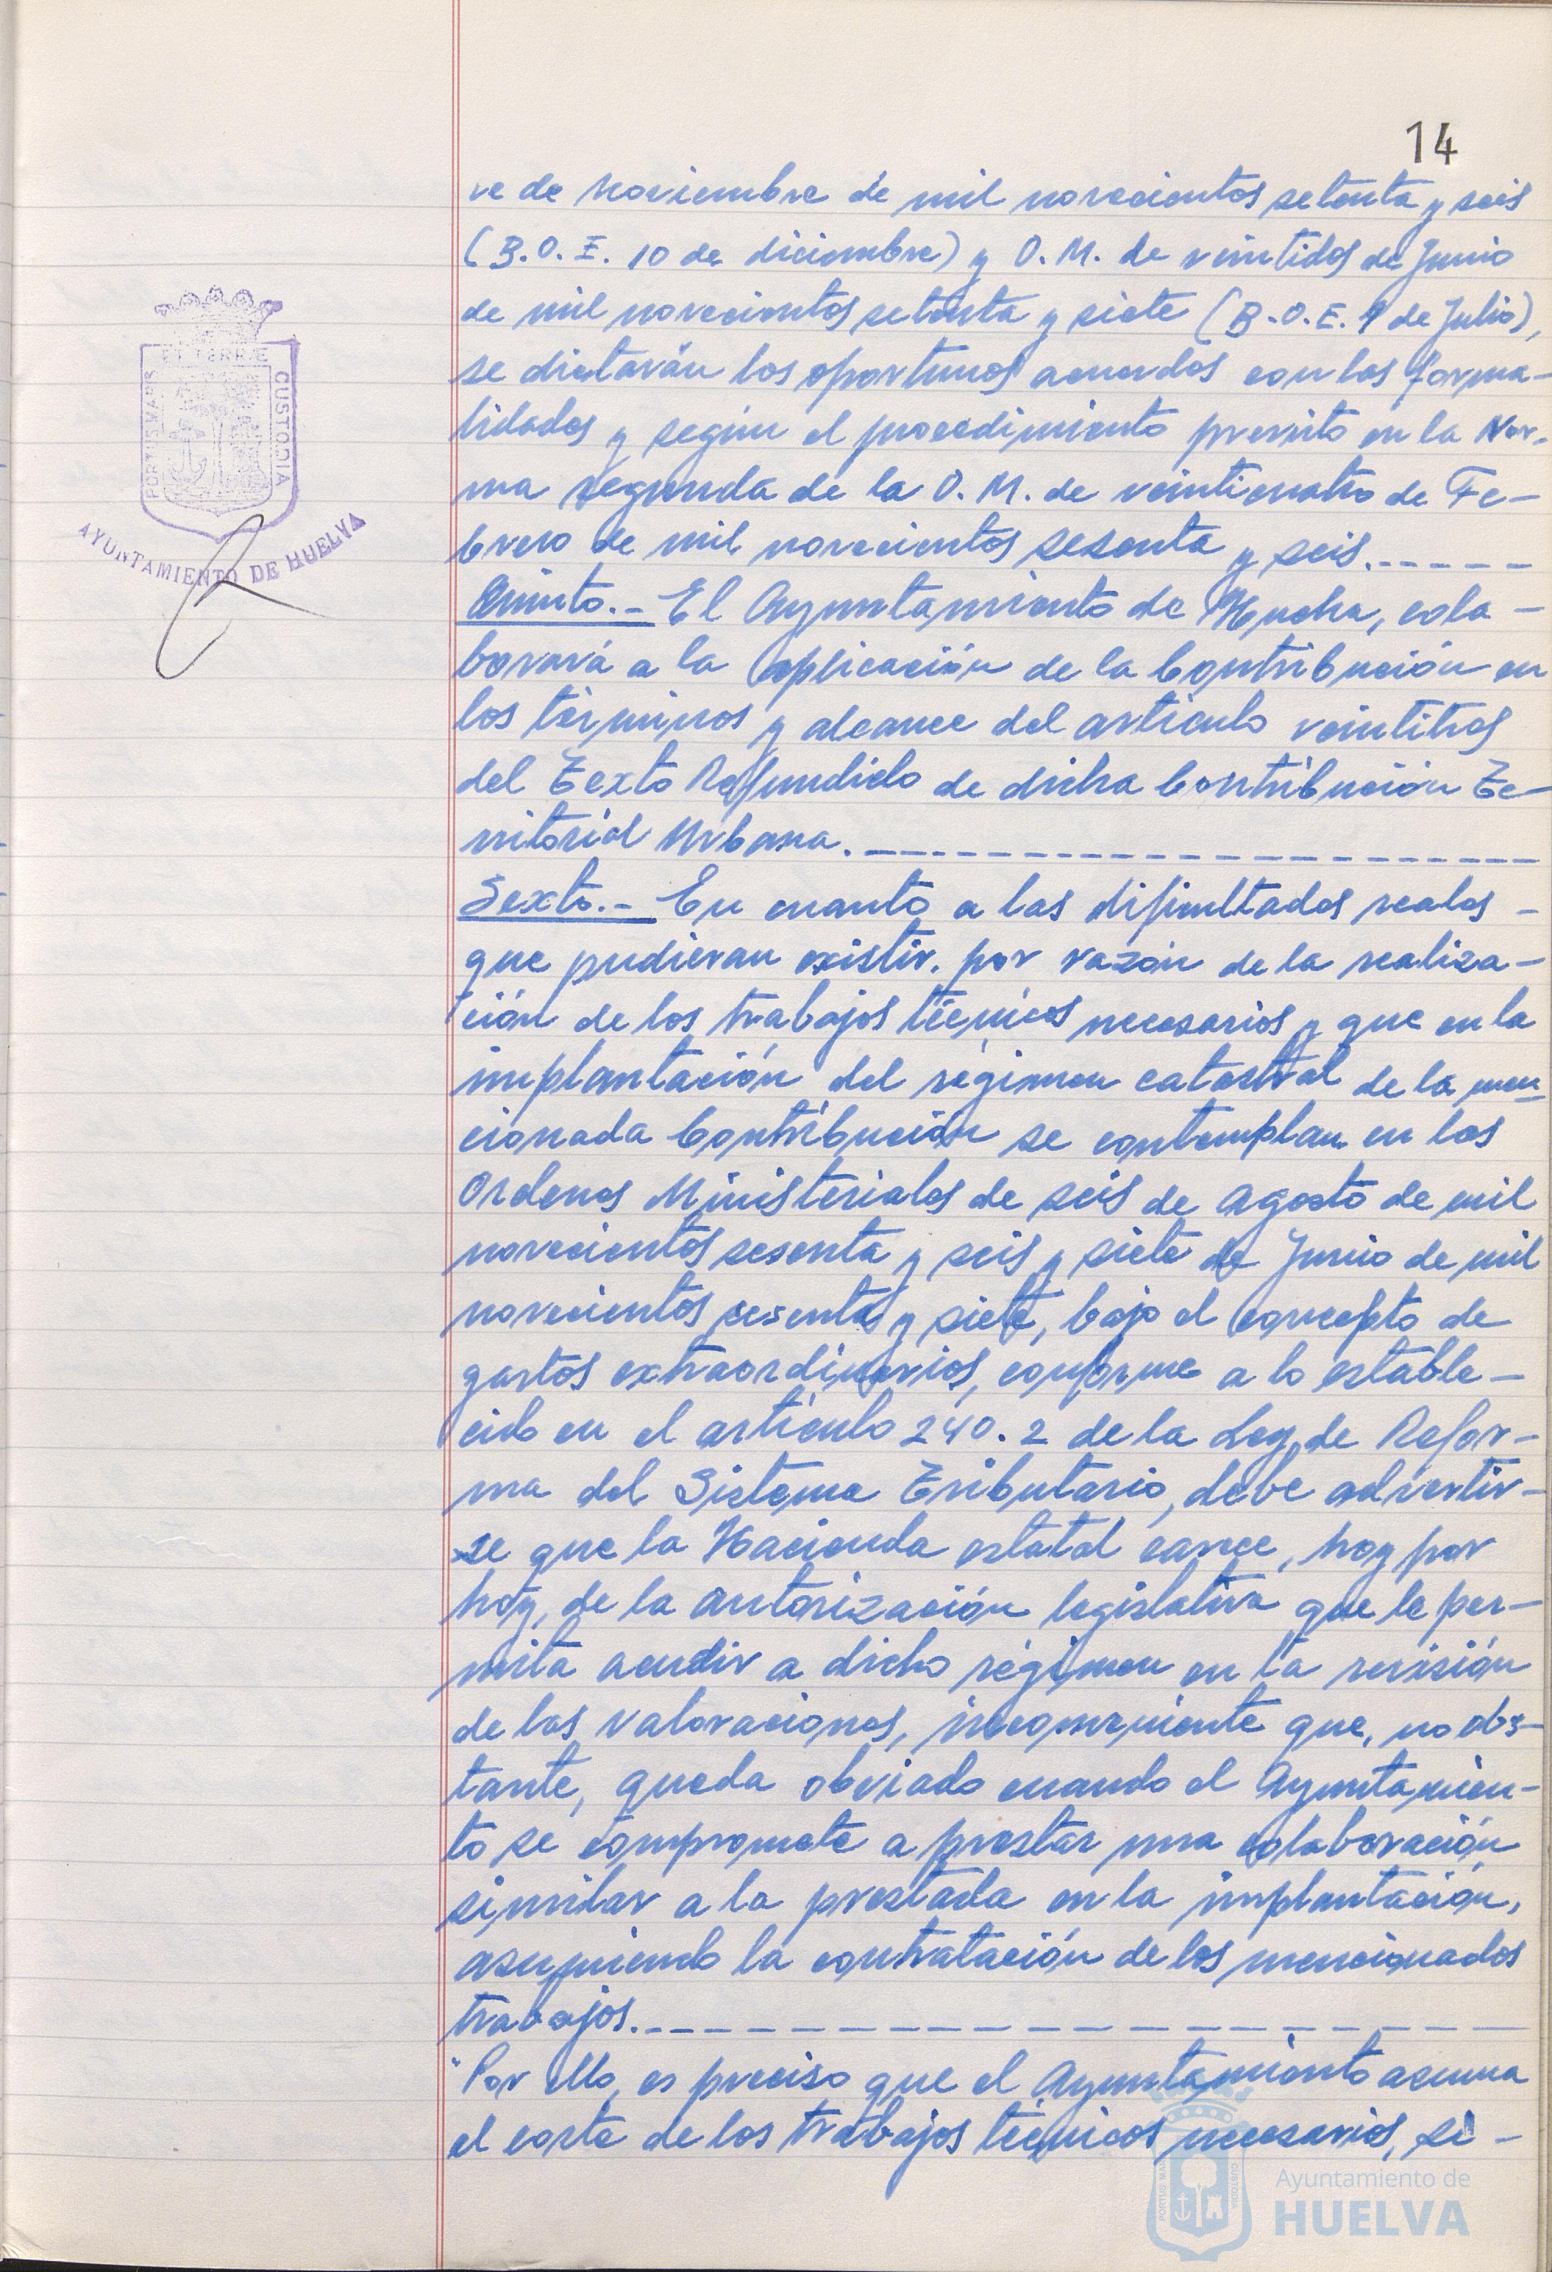 14
ve de Noviembre de mil novecientos setenta y seis
(B.O.E. 10 de diciembre) y O.M. de veintidos de Junio
de mil novecientos setenta y siete (B.O.E. 9 de Julio),
se dictarán los oportunos acuerdos con las forma-
lidades y según el procedimiento previsto en la Nor-
ma segunda de la O.M. de veinticuatro de Fe-
brero de mil novecientos sesenta y seis.
Quinto.- El Ayuntamiento de Huelva, cola-
borará a la aplicación de la Contribución en
los términos y alcance del artículo veintitres
del Texto Refundido de dicha Contribución Te-
rritorial Urbana.
Sexto.- En cuanto a las dificultades reales -
que pudieran existir, por razón de la realiza-
ción de los trabajos técnicos necesarios y que en la
implantación del régimen catastral de la men
cionada Contribución se contemplan en las
Ordenes Ministeriales de seis de Agosto de mil
novecientos sesenta y seis y siete de Junio de mil
novecientos sesenta y siete, bajo el concepto de
gastos extraordinarios, conforme a lo estable-
cido en el artículo 240.2 de la Ley de Refor-
ma del Sistema Tributario, debe advertir-
se que la Hacienda estatal carece, hoy por
hoy, de la autorización legislativa que le per-
mita acudir a dicho régimen en la revisión
de las valoraciones, inconveniente que, no obs-
tante, queda obviado cuando el Ayuntamien-
to se compromete a prestar una colaboración
similar a la prestada en la implantación,
asumiendo la contratación de los mencionados
trabajos.
Por ello, es preciso que el Ayuntamiento asuma
el coste de los trabajos técnicos necesarios, si-
PORTUS MARIS
ET TERRÆ
CUSTODIA
AYUNTAMIENTO DE HUELVA
Ayuntamiento de
HUELVA